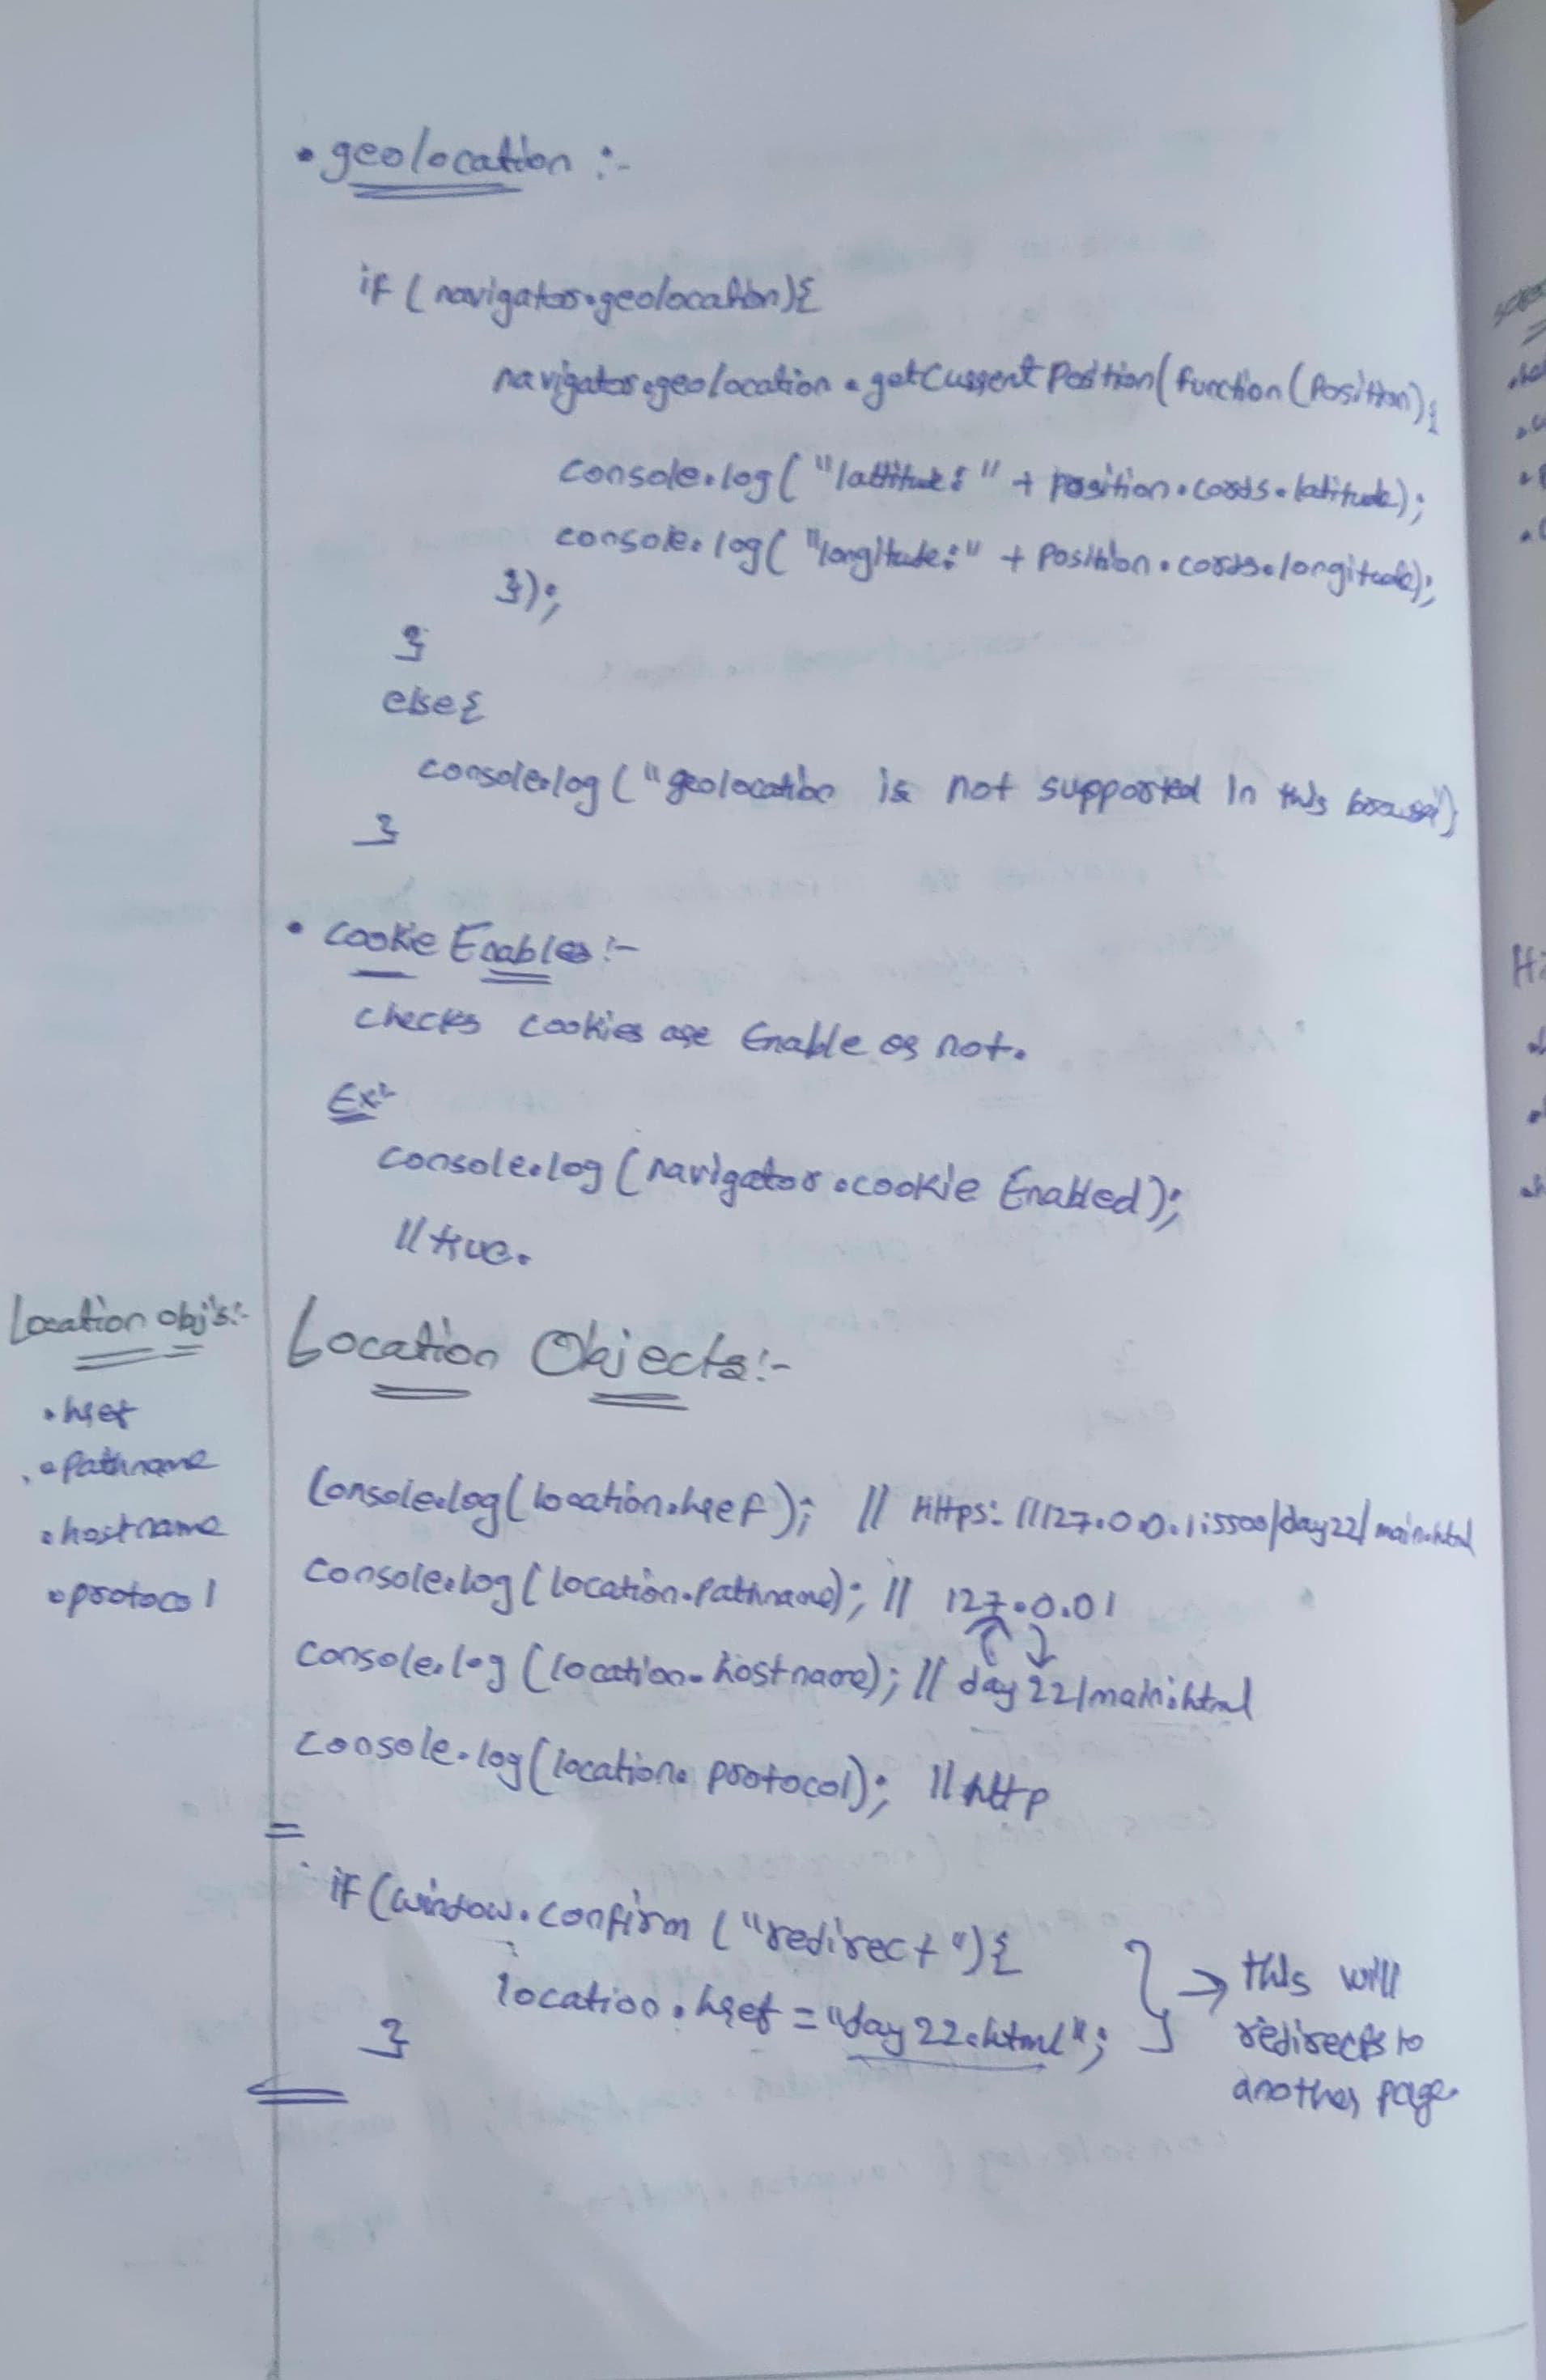 • geolocation :-
if ( navigator.geolocation){
navigator.geolocation.getCurrentPosition(function(Position){
console.log( "lattitue:" + position.cords.latitude);
console.log( "longitute:" + Position.cords.longitude);
});
}
else{
console.log ( "geolocation is not supported In this browser");
}
• Cookie Enables:-
checks cookies are Enable or not.
Ex:-
console.log (navigator.cookie Enabled);
// true.
Location obj's:-
• href
• Pathname
• hostname
• protocol
Location Objects:-
Console.log(location.href); // HHps: //127.0.0.1:5500/day22/main.html
Console.log(location.Pathname); // 127.0.01
Console.log (location.hostname); // day 22/main.html
Console.log(location.protocol); // http
=
if (window.confirm ( "redirect"){
location.href = "day22.html";
}
→ this will
redirects to
another page.